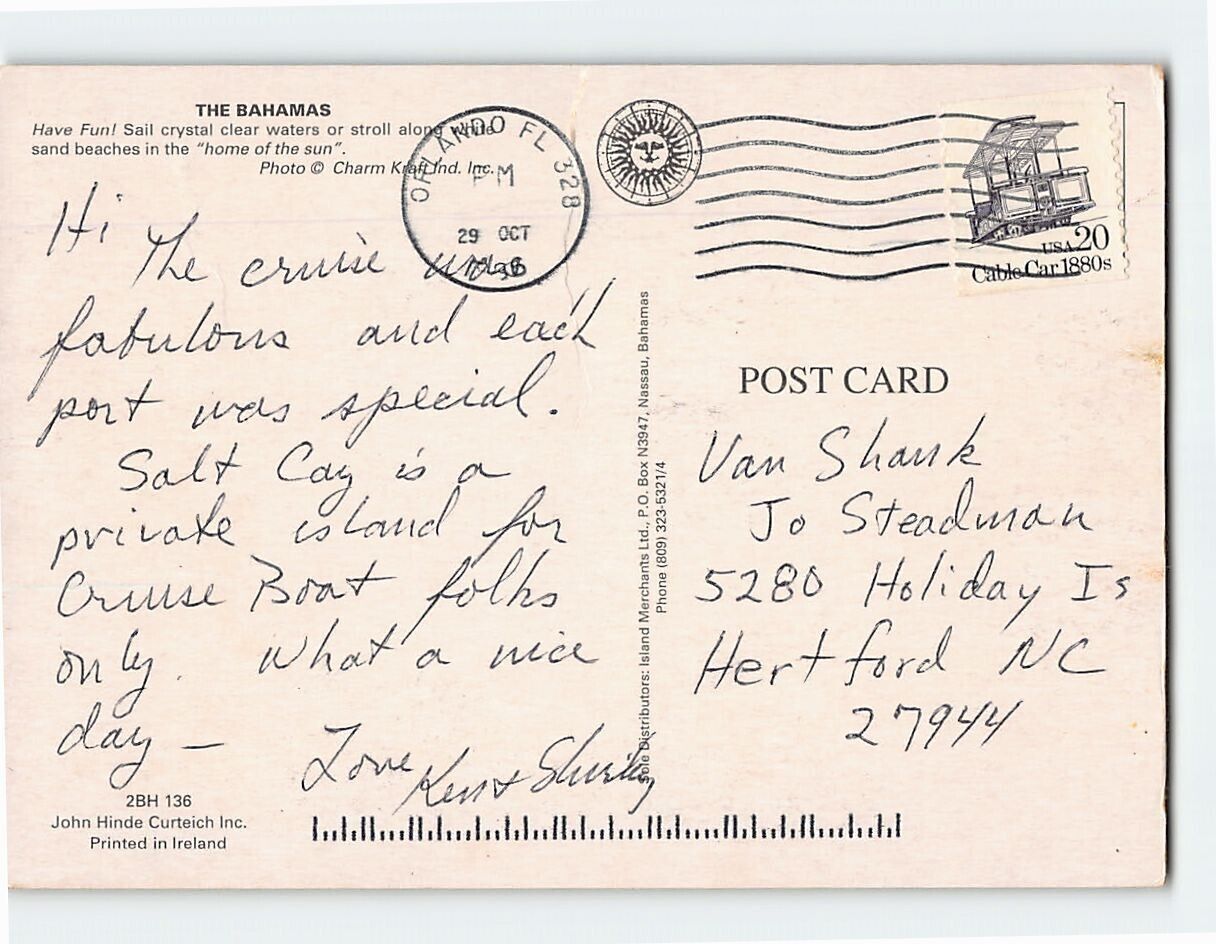 THE BAHAMAS
Have Fun! Sail crystal clear waters or stroll along white
sand beaches in the "home of the sun".
Photo © Charm Kraft Ind. Inc.
ORLANDO FL 328
PM
29 OCT
USA 20
Cable Car 1880s
Hi
The cruise was
fabulous and each
port was special.
Salt Cay is a
private island for
Cruise Boat folks
only. What a nice
day —
Love
Ken & Shirley
Sole Distributors: Island Merchants Ltd., P.O. Box N3947, Nassau, Bahamas
Phone (809) 323-5321/4
POST CARD
Van Shank
Jo Steadman
5280 Holiday Is
Hertford NC
27944
2BH 136
John Hinde Curteich Inc.
Printed in Ireland